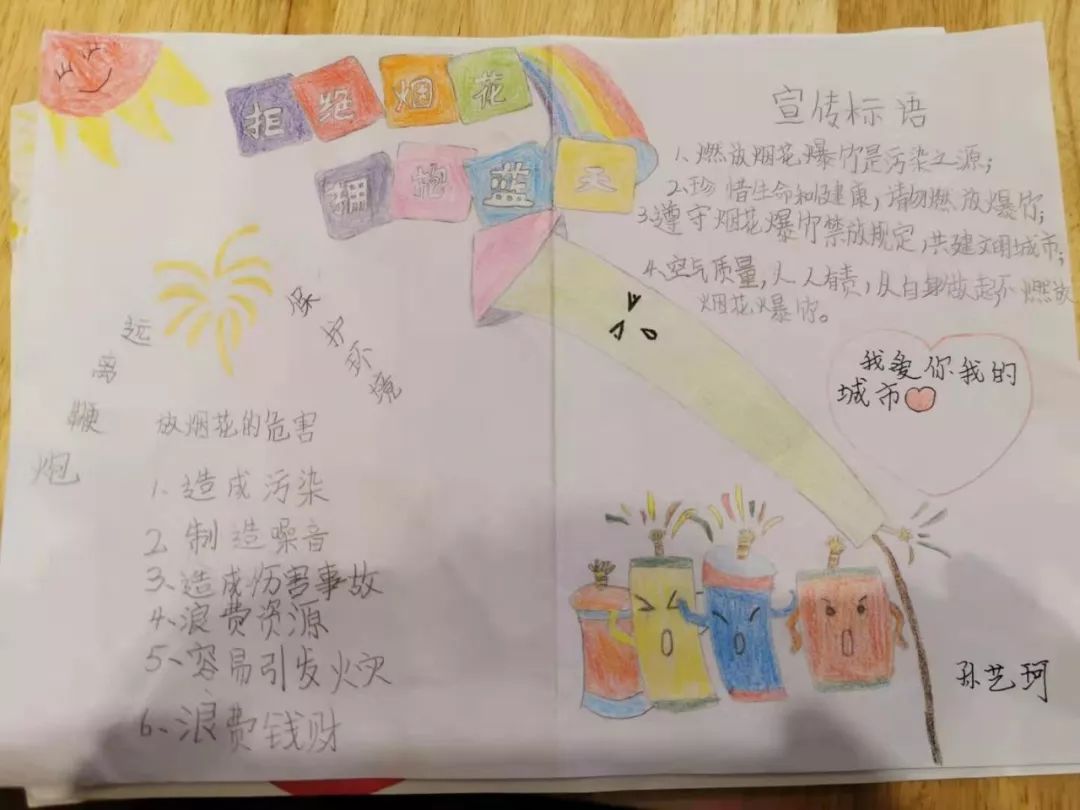 拒绝烟花
拥抱蓝天
远离鞭炮
保护环境
放烟花的危害
1、造成污染
2、制造噪音
3、造成伤害事故
4、浪费资源
5、容易引发火灾
6、浪费钱财
宣传标语
1、燃放烟花爆竹是污染之源;
2、珍惜生命和健康,请勿燃放爆竹;
3、遵守烟花爆竹禁放规定,共建文明城市;
4、空气质量,人人有责,从自身做起不燃放
烟花爆竹。
我爱你我的
城市
孙艺珂